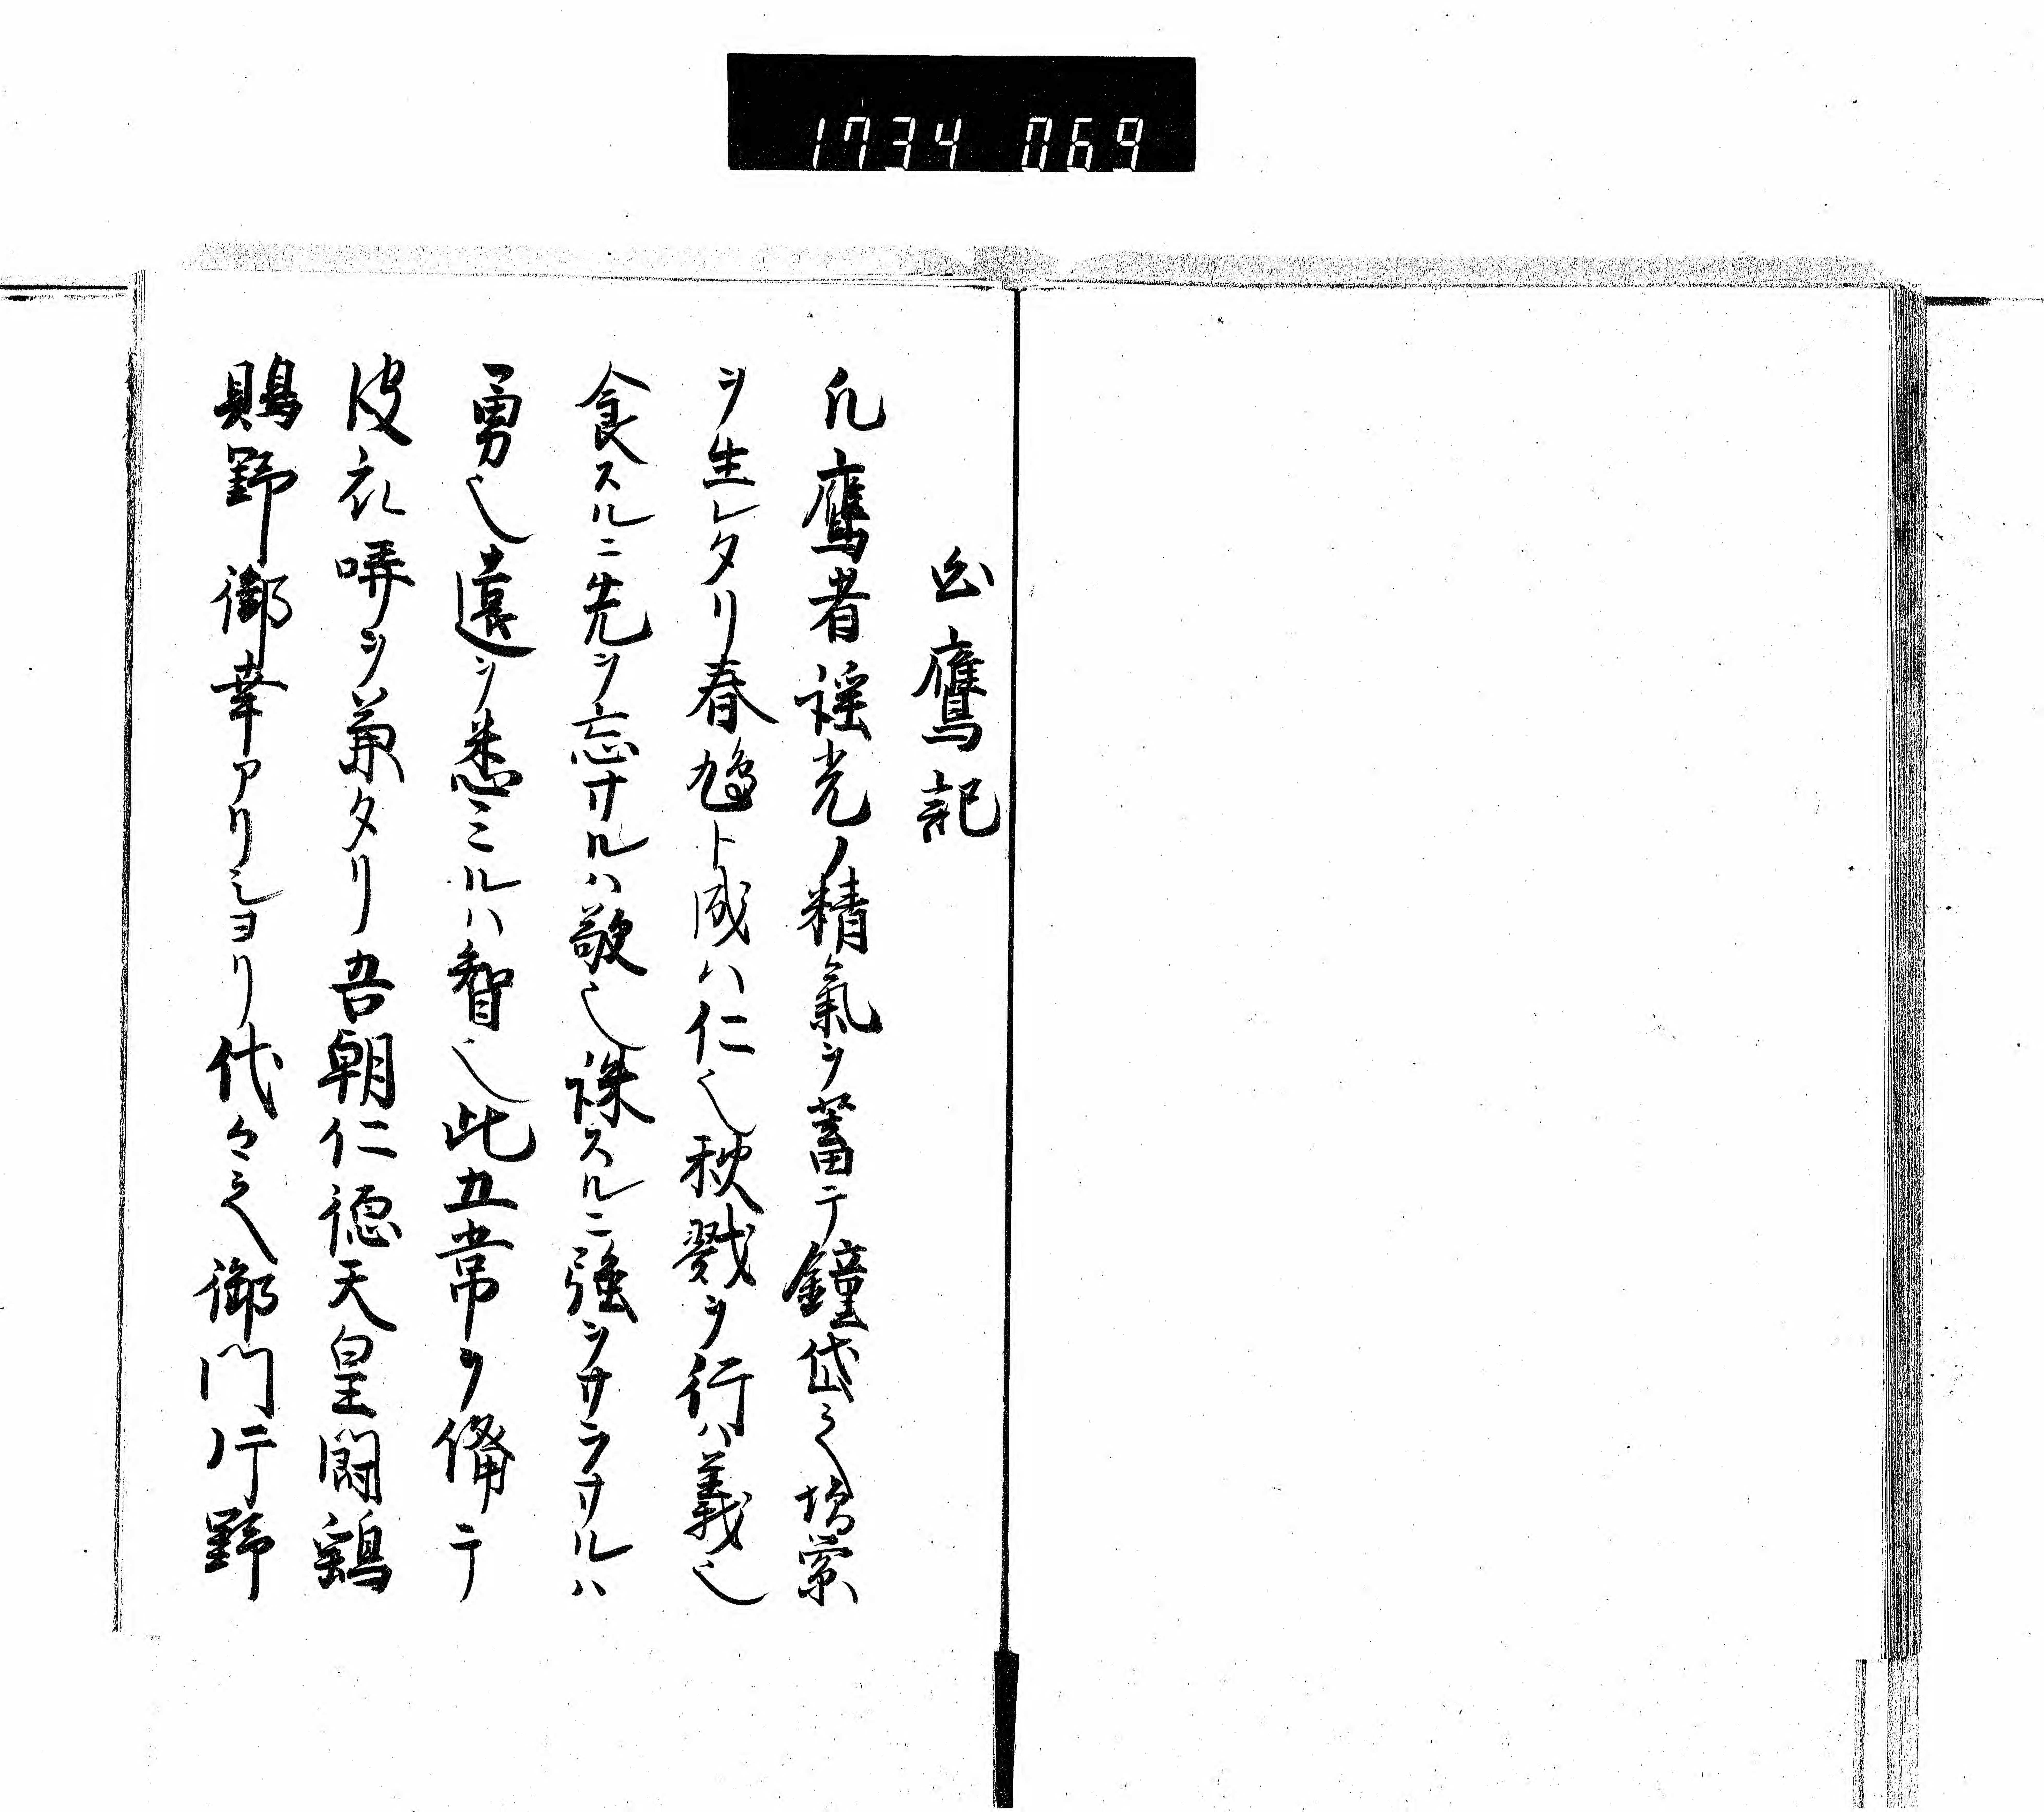 1734 069
鷹記
凡鷹者瑶光ノ精氣ヲ蓄テ鐘岱之
ヲ生レタリ春鳩ト成ハ仁也秋戮ヲ行ハ義也
食スルニ先ヲ忘サルハ敬也誅スルニ強ヲサラサルハ
勇也遠ヲ悉ミルハ智也此五常ヲ備テ
皮衣哢ヲ兼タリ吾朝仁徳天皇闘鶏
賜野御幸アリシヨリ代々之御門片野